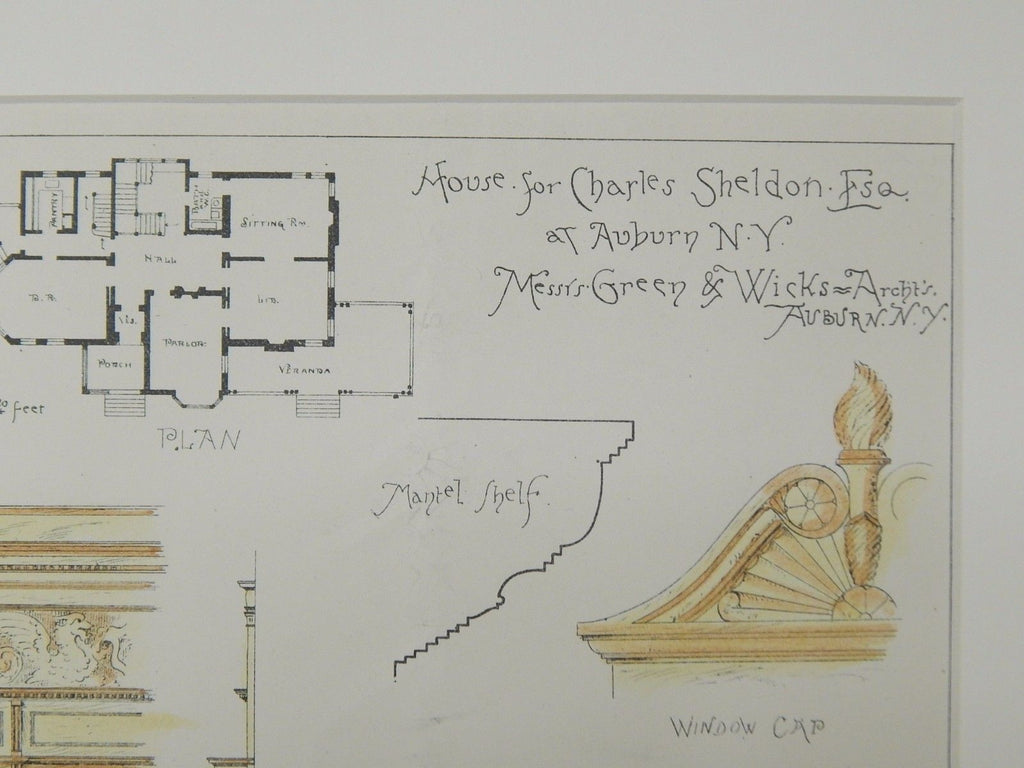 House. for Charles Sheldon. Esq.
at Auburn N.Y.
Messrs. Green & Wicks = Archt's.
AUBURN. N.Y.
PANTRY
BATH
SITTING RM
HALL
D.R.
LIB.
VES.
PARLOR
PORCH
VERANDA
feet
PLAN
Mantel Shelf.
WINDOW CAP